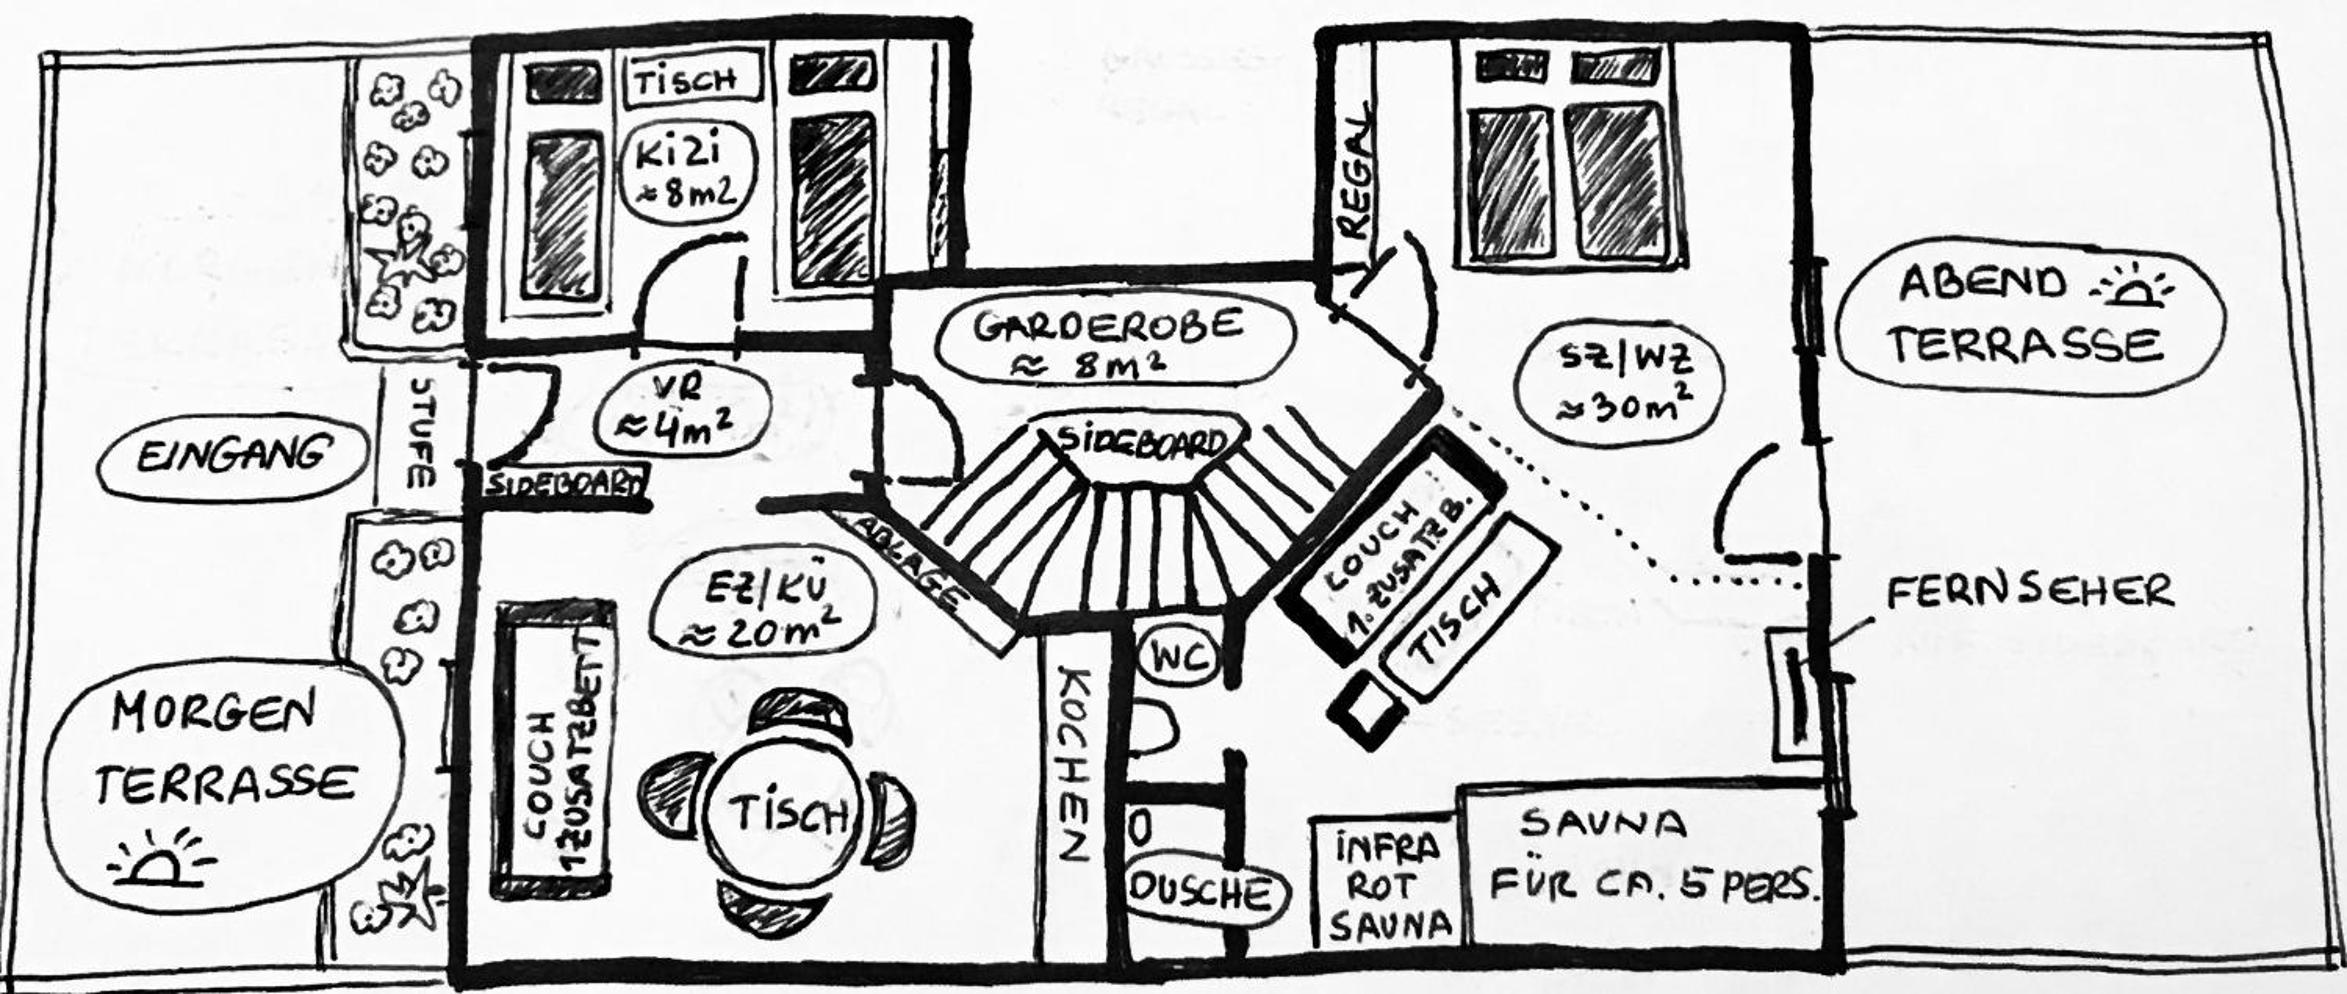 TISCH
KiZi
≈ 8m2
REGAL
GARDEROBE
≈ 8m²
SIDEBOARD
ABEND
TERRASSE
SZ/WZ
≈ 30m²
VR
≈ 4m²
STUFE
EINGANG
SIDEBOARD
ABLAGE
EZ/KÜ
≈ 20m²
COUCH
1.ZUSATZB.
TISCH
FERNSEHER
WC
KOCHEN
MORGEN
TERRASSE
COUCH
1ZUSATZBETT
TISCH
DUSCHE
INFRA
ROT
SAUNA
SAUNA
FÜR CA. 5 PERS.